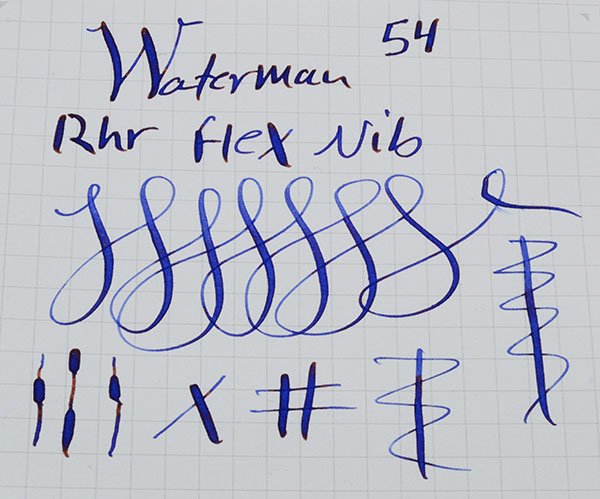 Waterman 54
Rhr Flex Nib